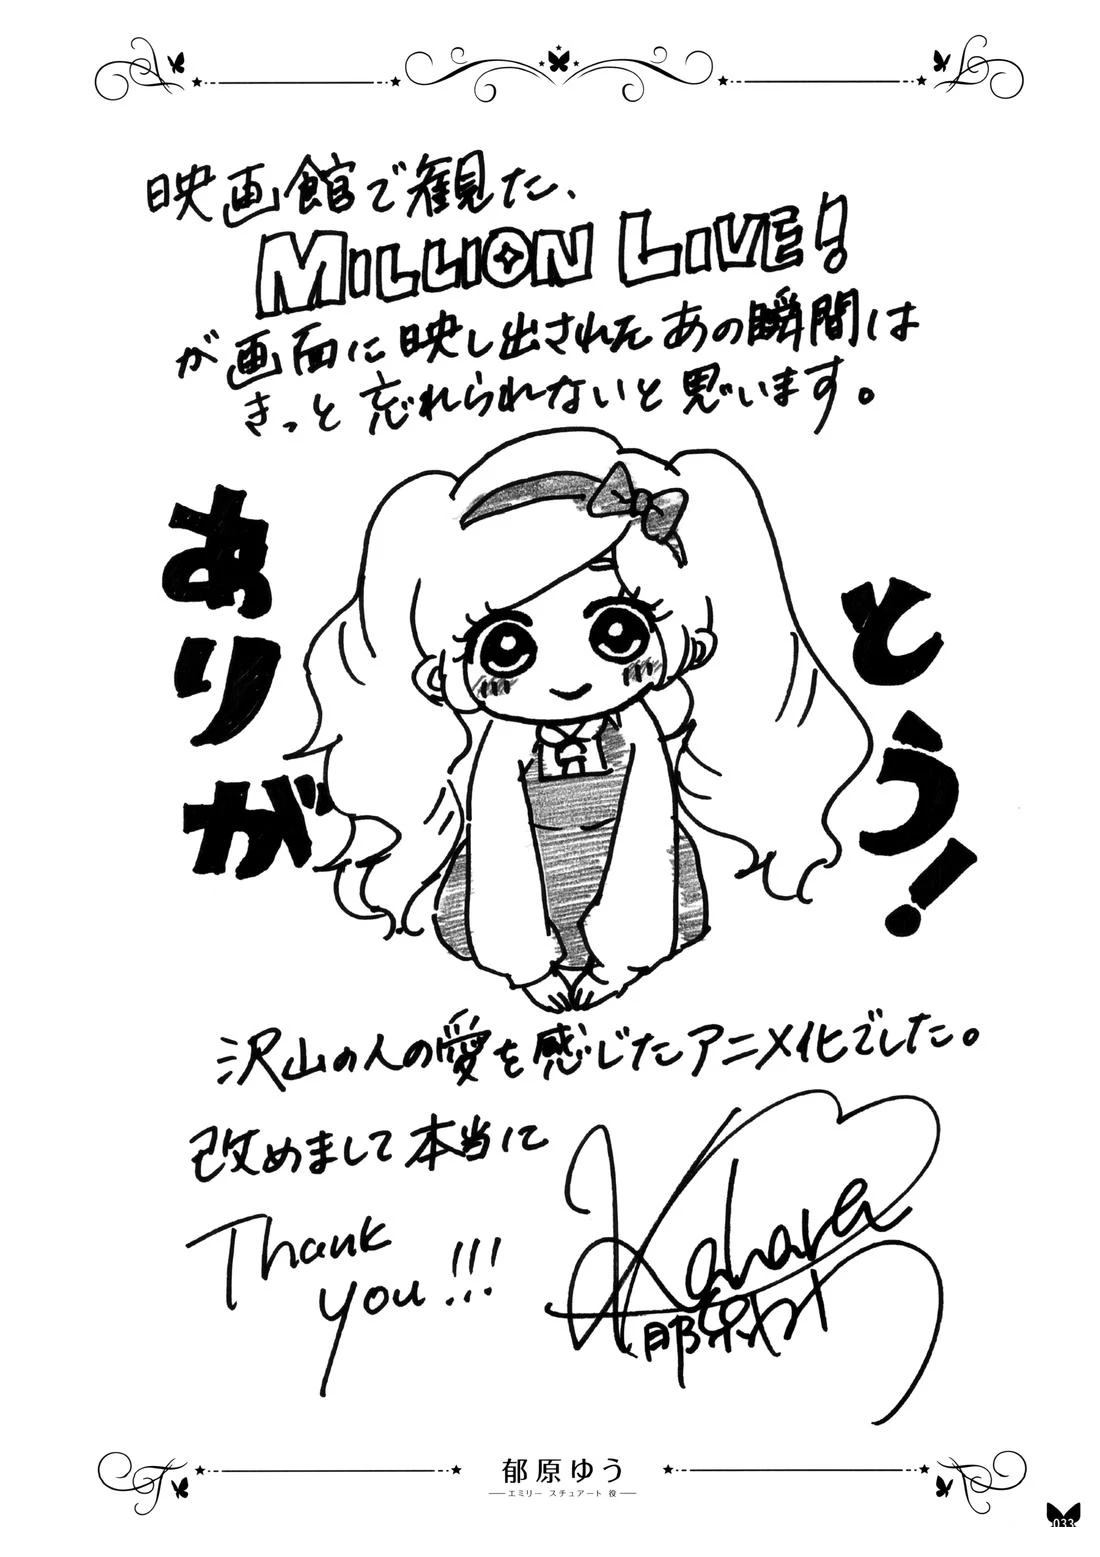 映画館で観た、
MILLION LIVE!
が画面に映し出されたあの瞬間は
きっと忘れられないと思います。
ありが
とう!
沢山の人の愛を感じたアニメ化でした。
改めまして本当に
Thank
you!!!
Kahara
郁原ゆう
エミリー スチュアート 役
033